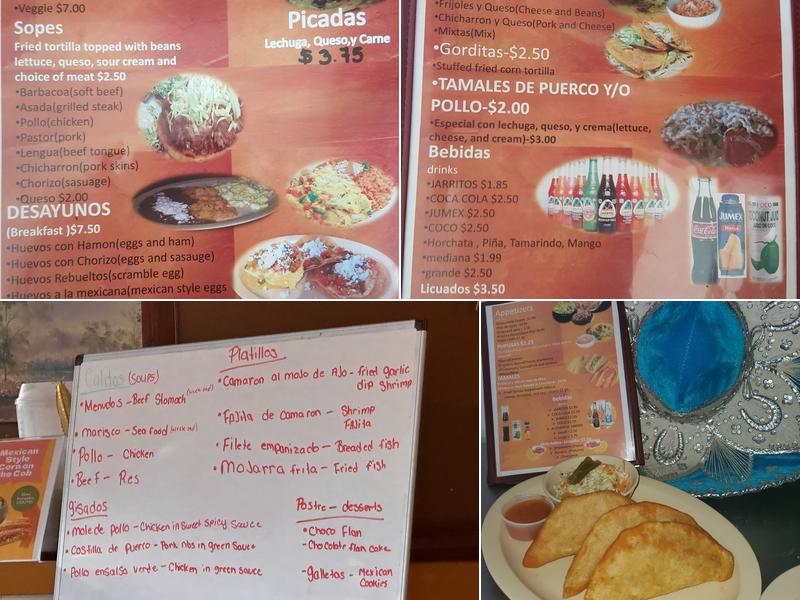 •Veggie $7.00
Sopes
Fried tortilla topped with beans
lettuce, queso, sour cream and
choice of meat $2.50
•Barbacoa(soft beef)
•Asada(grilled steak)
•Pollo(chicken)
•Pastor(pork)
•Lengua(beef tongue)
•Chicharron(pork skins)
•Chorizo(sasuage)
•Queso $2.00
Picadas
Lechuga, Queso,y Carne
$3.75
DESAYUNOS
(Breakfast )$7.50
•Huevos con Hamon(eggs and ham)
•Huevos con Chorizo(eggs and sasauge)
•Huevos Rebueltos(scramble egg)
•Huevos a la mexicana(mexican style eggs
•Frijoles y Queso(Cheese and Beans)
•Chicharron y Queso(Pork and Cheese)
•Mixtas(Mix)
•Gorditas-$2.50
•Stuffed fried corn tortilla
•TAMALES DE PUERCO Y/O
POLLO-$2.00
•Especial con lechuga, queso, y crema(lettuce,
cheese, and cream)-$3.00
Bebidas
drinks
•JARRITOS $1.85
•COCA COLA $2.50
•JUMEX $2.50
•COCO $2.50
•Horchata , Piña, Tamarindo, Mango
•mediana $1.99
•grande $2.50
Licuados $3.50
Coca-Cola
JUMEX
FOCO
COCONUT JUICE
Platillos
Caldos (soups)
•Menudos - Beef Stomach
•marisco - Sea food
•Pollo - Chicken
•Beef - Res
•Camaron al mojo de Ajo - fried garlic
dip Shrimp
•Fajita de Camaron - Shrimp
Fajita
•Filete empanizado - Breaded fish
•Mojarra frita - Fried fish
gisados
•mole de pollo - Chicken in Sweet Spicy Sauce
•Costilla de puerco - Pork ribs in green Sauce
•Pollo ensalsa verde - Chicken in green sauce
Postre - desserts
•Choco Flan
- Chocolate flan cake
- galletas - Mexican
Cookies
Mexican
Style
Corn on
the Cob
Appetizers
PUPUSAS $2.25
TAMALES
Bebidas